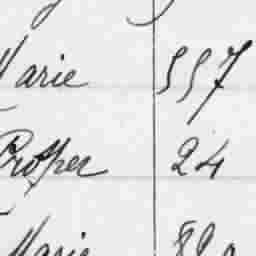 Marie 557
Prosper 24
Marie 82